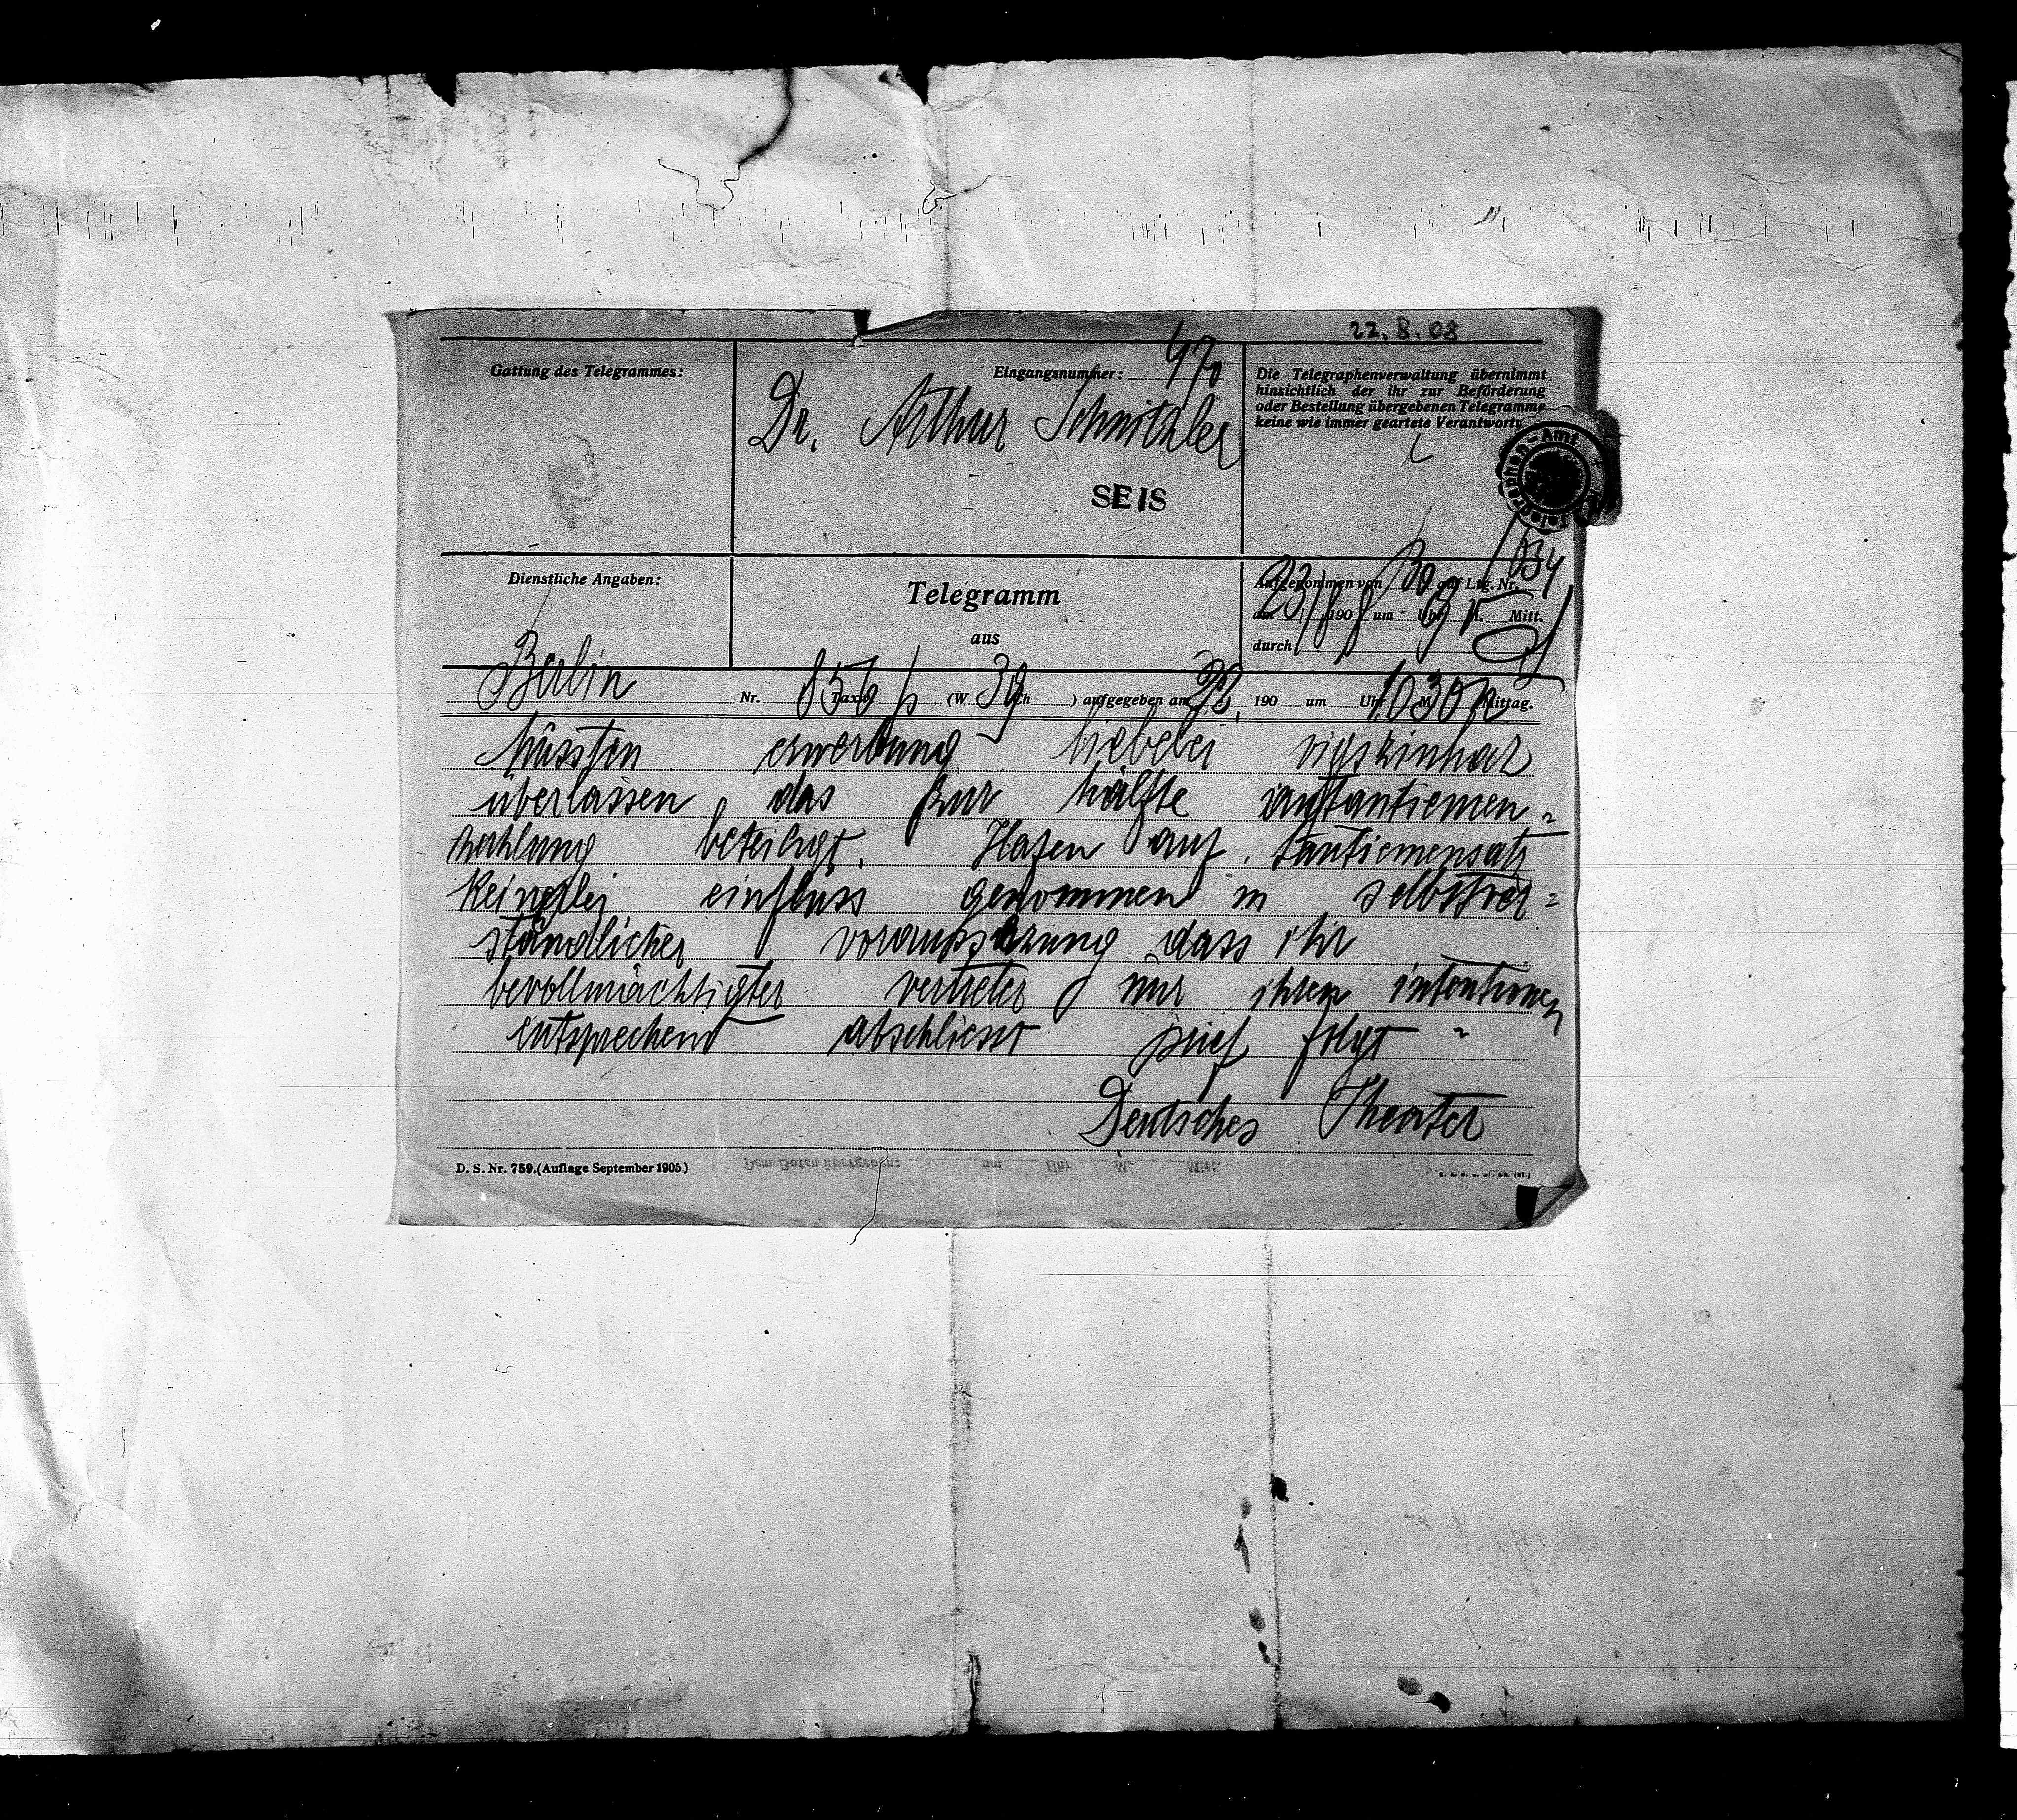 22.8.08
Gattung des Telegrammes:
Eingangsnummer: 470
Dr. Arthur Schnitzler
SEIS
Die Telegraphenverwaltung übernimmt
hinsichtlich der ihr zur Beförderung
oder Bestellung übergebenen Telegramme
keine wie immer geartete Verantwortu
Telegraphen-Amt
Dienstliche Angaben:
Telegramm
aus
Aufgenommen von auf Ltg. Nr.
am 23/8 1908 um Uhr M. Mitt.
durch
Berlin Nr. Taxw. (W. 39 Ch ) aufgegeben am 22. 190 um Uhr 1030 M. Mittag.
Müssten erwerbung liebelei vigszinhaz
überlassen das zur hälfte tantiemen-
zahlung beteiligt. Hafen auf tantiemensatz
keinerlei einfluss genommen in selbstver-
ständlicher voraussezung dass ihr
bevollmächtigter vertreter nur ihren intentionen
entsprechend abschliesst brief folgt -
Deutsches Theater
D. S. Nr. 759. (Auflage September 1905)
Dem Boten übergeben: um Uhr M. Mitt.